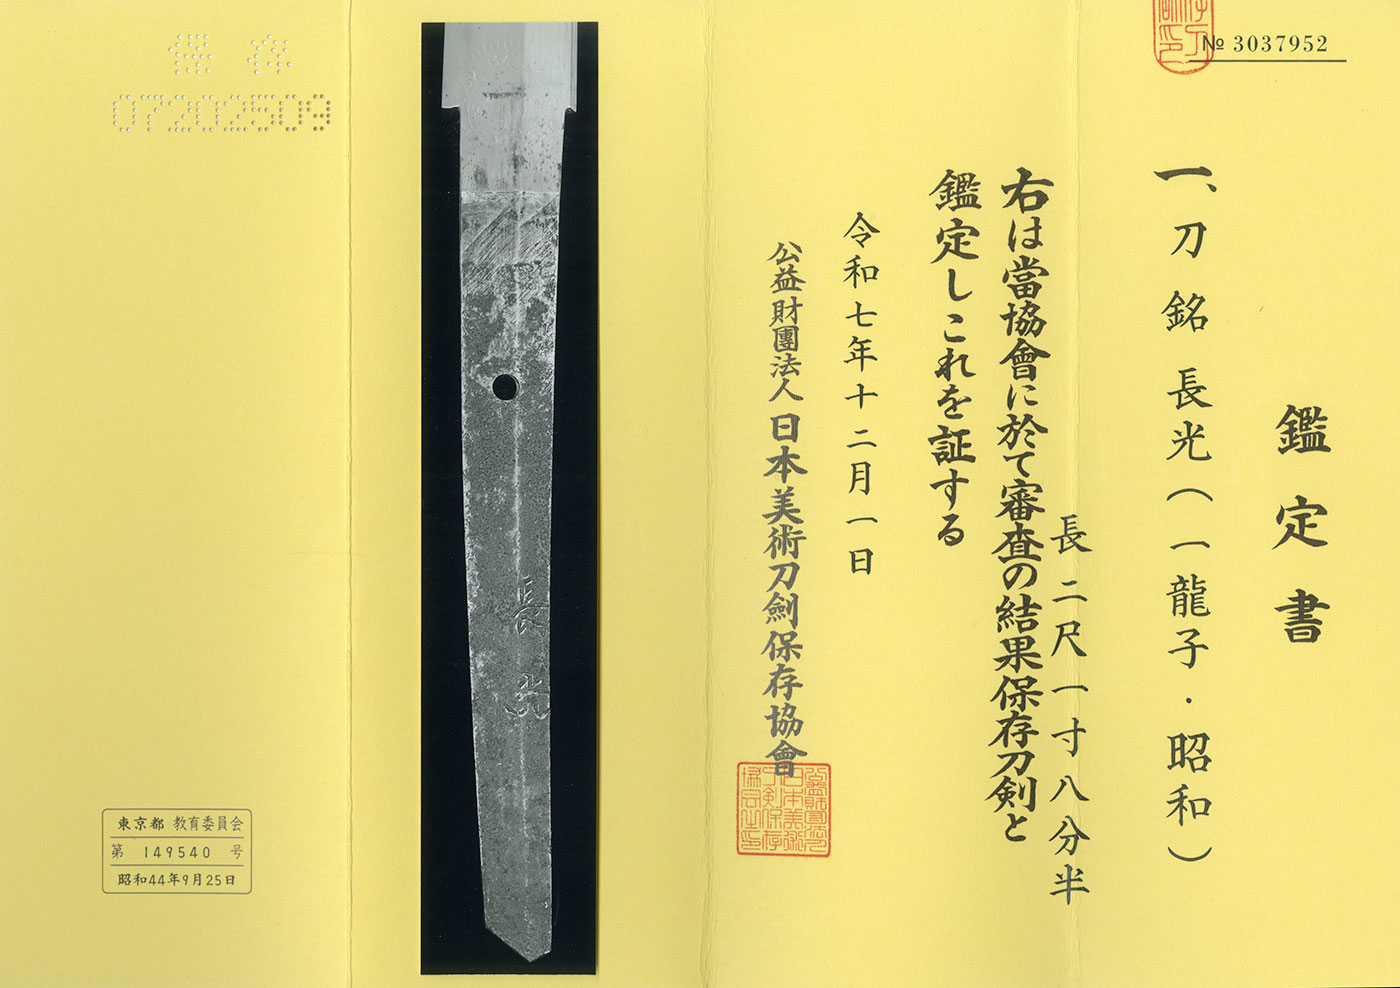 № 3037952
鑑定書
一、刀 銘 長光（一龍子・昭和）
長 二尺一寸八分半
右は當協會に於て審査の結果保存刀剣と
鑑定しこれを証する
令和七年十二月一日
公益財團法人 日本美術刀劍保存協會
長光
保存
07202509
東京都 教育委員会
第 149540 号
昭和44年9月25日